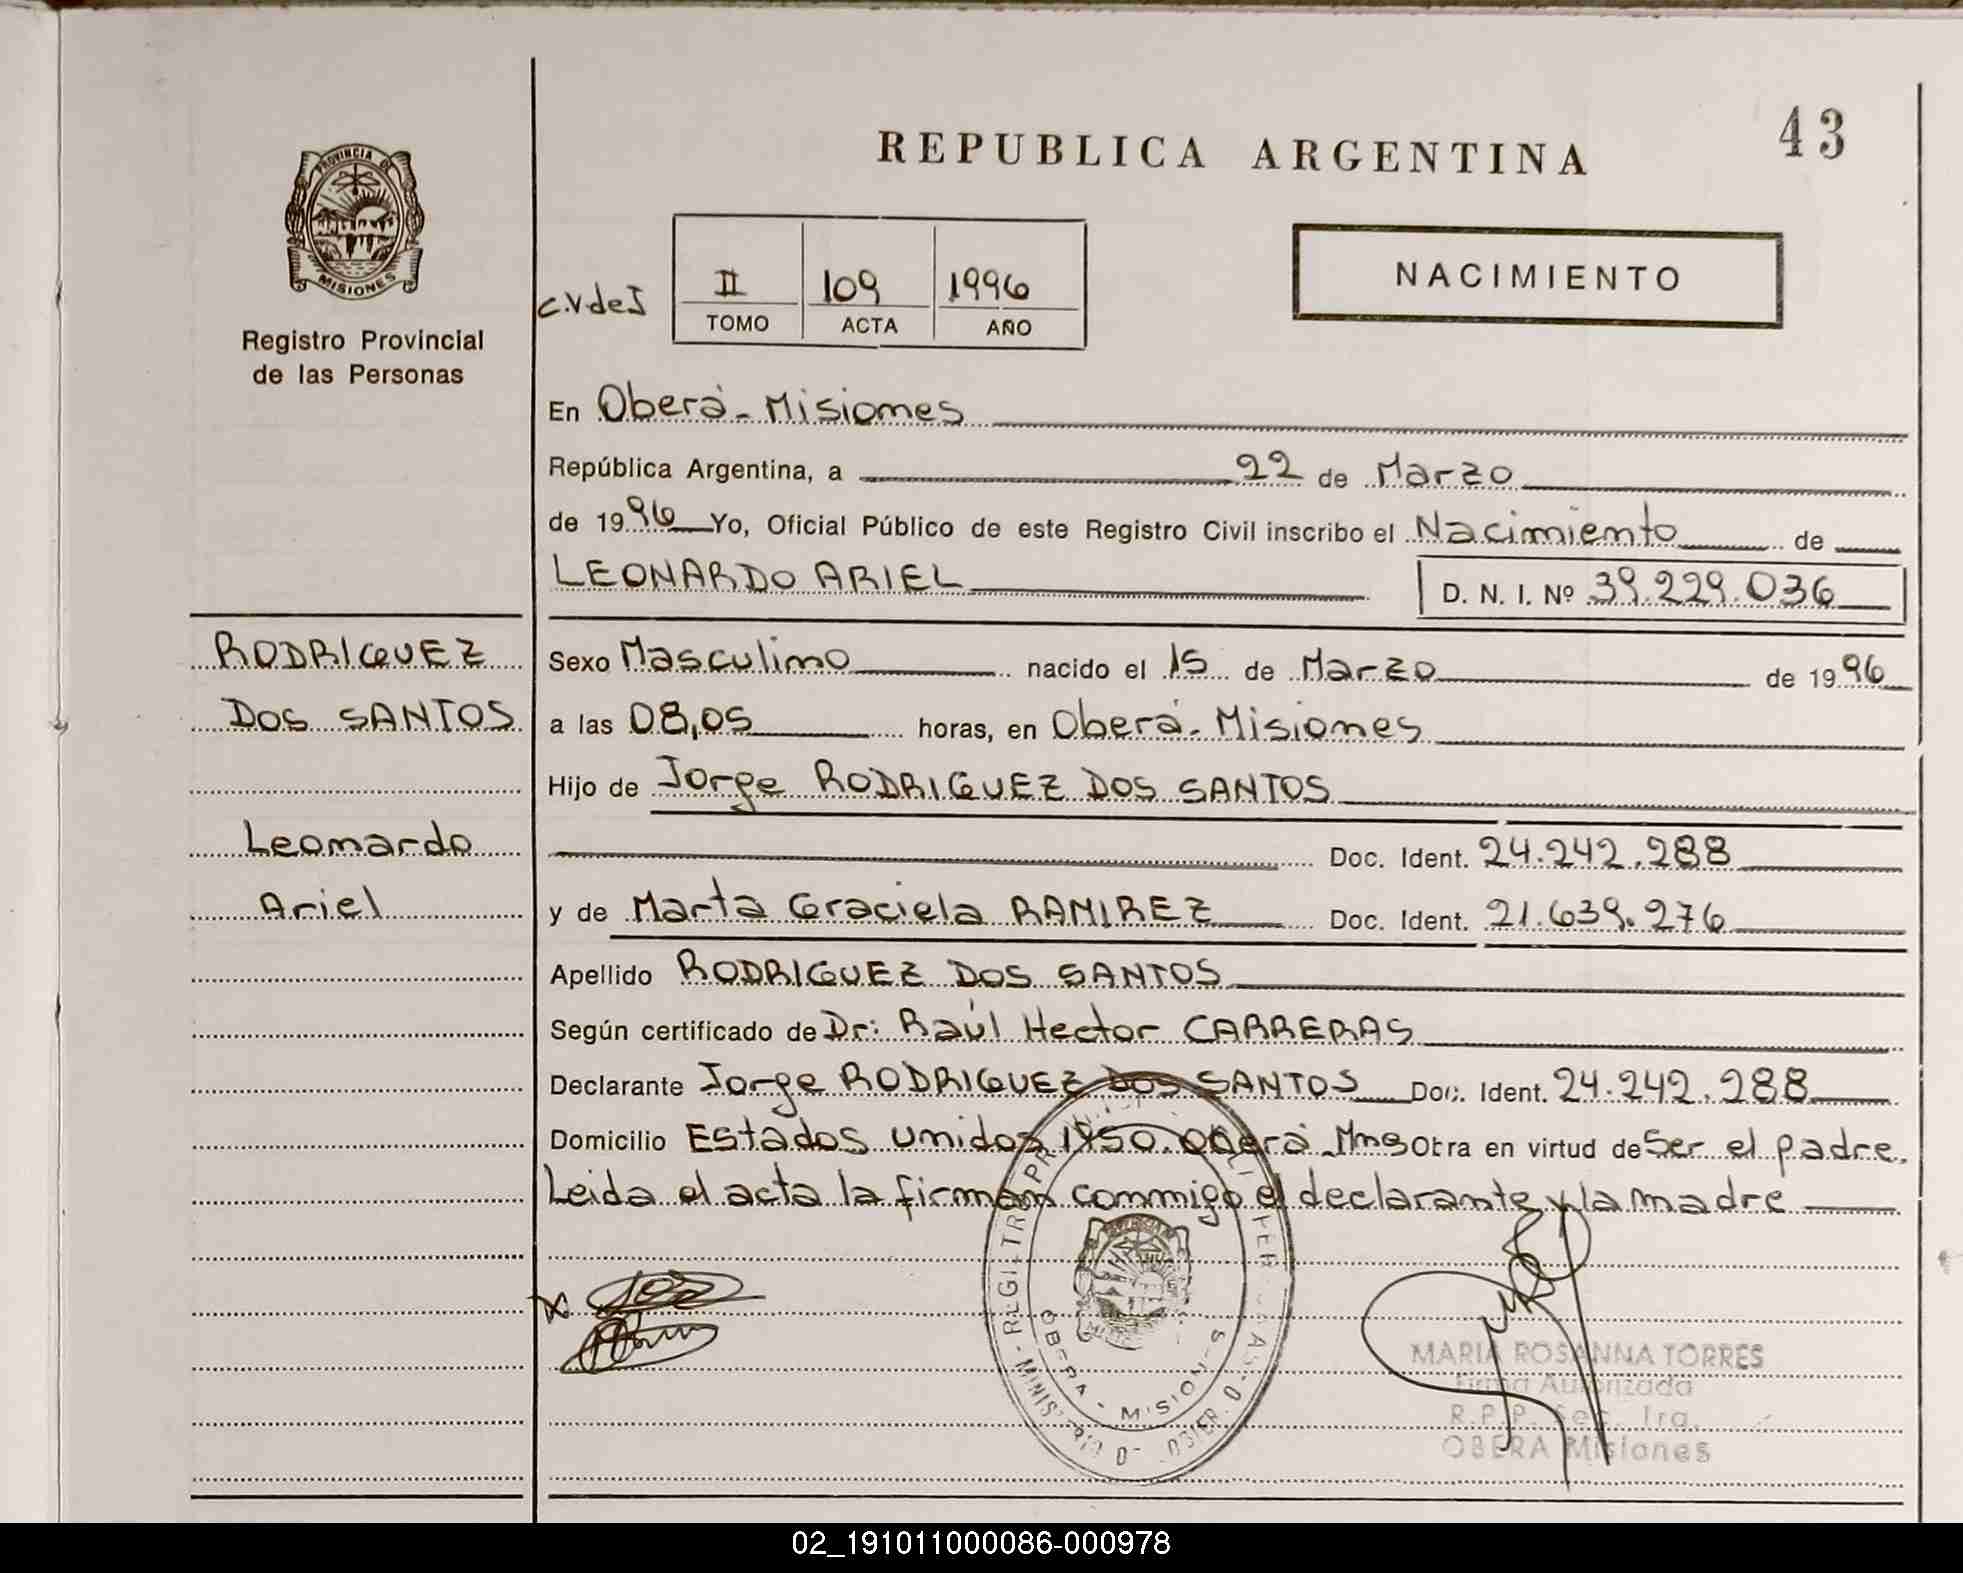 43
REPUBLICA ARGENTINA
PROVINCIA DE
MISIONES
Registro Provincial
de las Personas
NACIMIENTO
C.V de J
II 109 1996
TOMO ACTA AÑO
En Oberá - Misiones
República Argentina, a 22 de Marzo
de 1996 Yo, Oficial Público de este Registro Civil inscribo el Nacimiento de
LEONARDO ARIEL D. N. I. Nº 39.229.036
RODRIGUEZ
DOS SANTOS
Leonardo
Ariel
Sexo Masculino nacido el 15 de Marzo de 1996
a las 08,05 horas, en Oberá - Misiones
Hijo de Jorge RODRIGUEZ DOS SANTOS
Doc. Ident. 24.242.288
y de Marta Graciela RAMIREZ Doc. Ident. 21.639.276
Apellido RODRIGUEZ DOS SANTOS
Según certificado de Dr: Raúl Hector CARRERAS
Declarante Jorge RODRIGUEZ DOS SANTOS Doc. Ident. 24.242.288
Domicilio Estados Unidos 1950. Oberá Mnes Obra en virtud de Ser el padre.
Leida el acta la firman conmigo el declarante y la madre
OBERA - MISIONES
MARIA ROSANNA TORRES
Firma Autorizada
R.P.P. Sec. 1ra.
OBERA Misiones
02_191011000086-000978